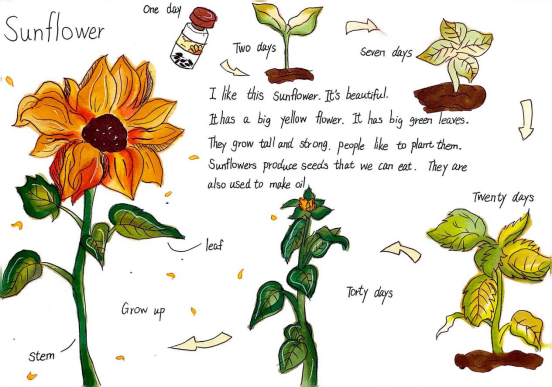 Sunflower
One day
Two days
Seven days
I like this sunflower. It's beautiful.
It has a big yellow flower. It has big green leaves.
They grow tall and strong. people like to plant them.
Sunflowers produce seeds that we can eat. They are
also used to make oil
Twenty days
Torty days
leaf
Grow up
Stem